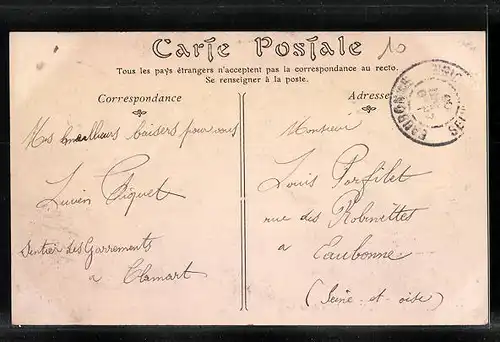 Carte Postale
Tous les pays étrangers n'acceptent pas la correspondance au recto.
Se renseigner à la poste.
Correspondance
Adresse
10
EAUBONNE
Mes meilleurs baisers pour vous
Lucien Piquet
Sentier des Garrements
a Clamart
Monsieur
Louis Porfilet
rue des Robinettes
a
Eaubonne
(Seine et oise)